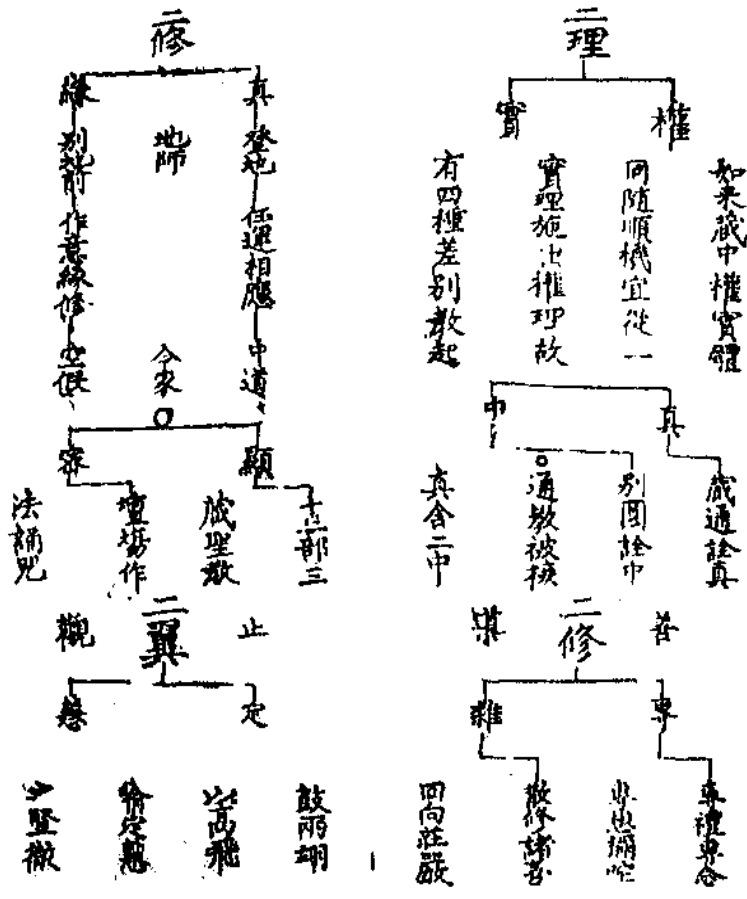 二理
權
實
如來藏中權實體
同隨順機宜從一
實理施出權理故
有四種差別教起
真
中
藏通詮真
別圓詮中
通教被接
真含二中
善導
二修
專
雜
專禮專念
散修諸善
回向莊嚴
二修
真
緣
登地
任運相應
中道
地師
別地前
作意緣修
空假
今家
顯
密
十二部三
藏聖教
壇場作
法誦咒
二翼
止
觀
定
慧
鼓兩翅
而高飛